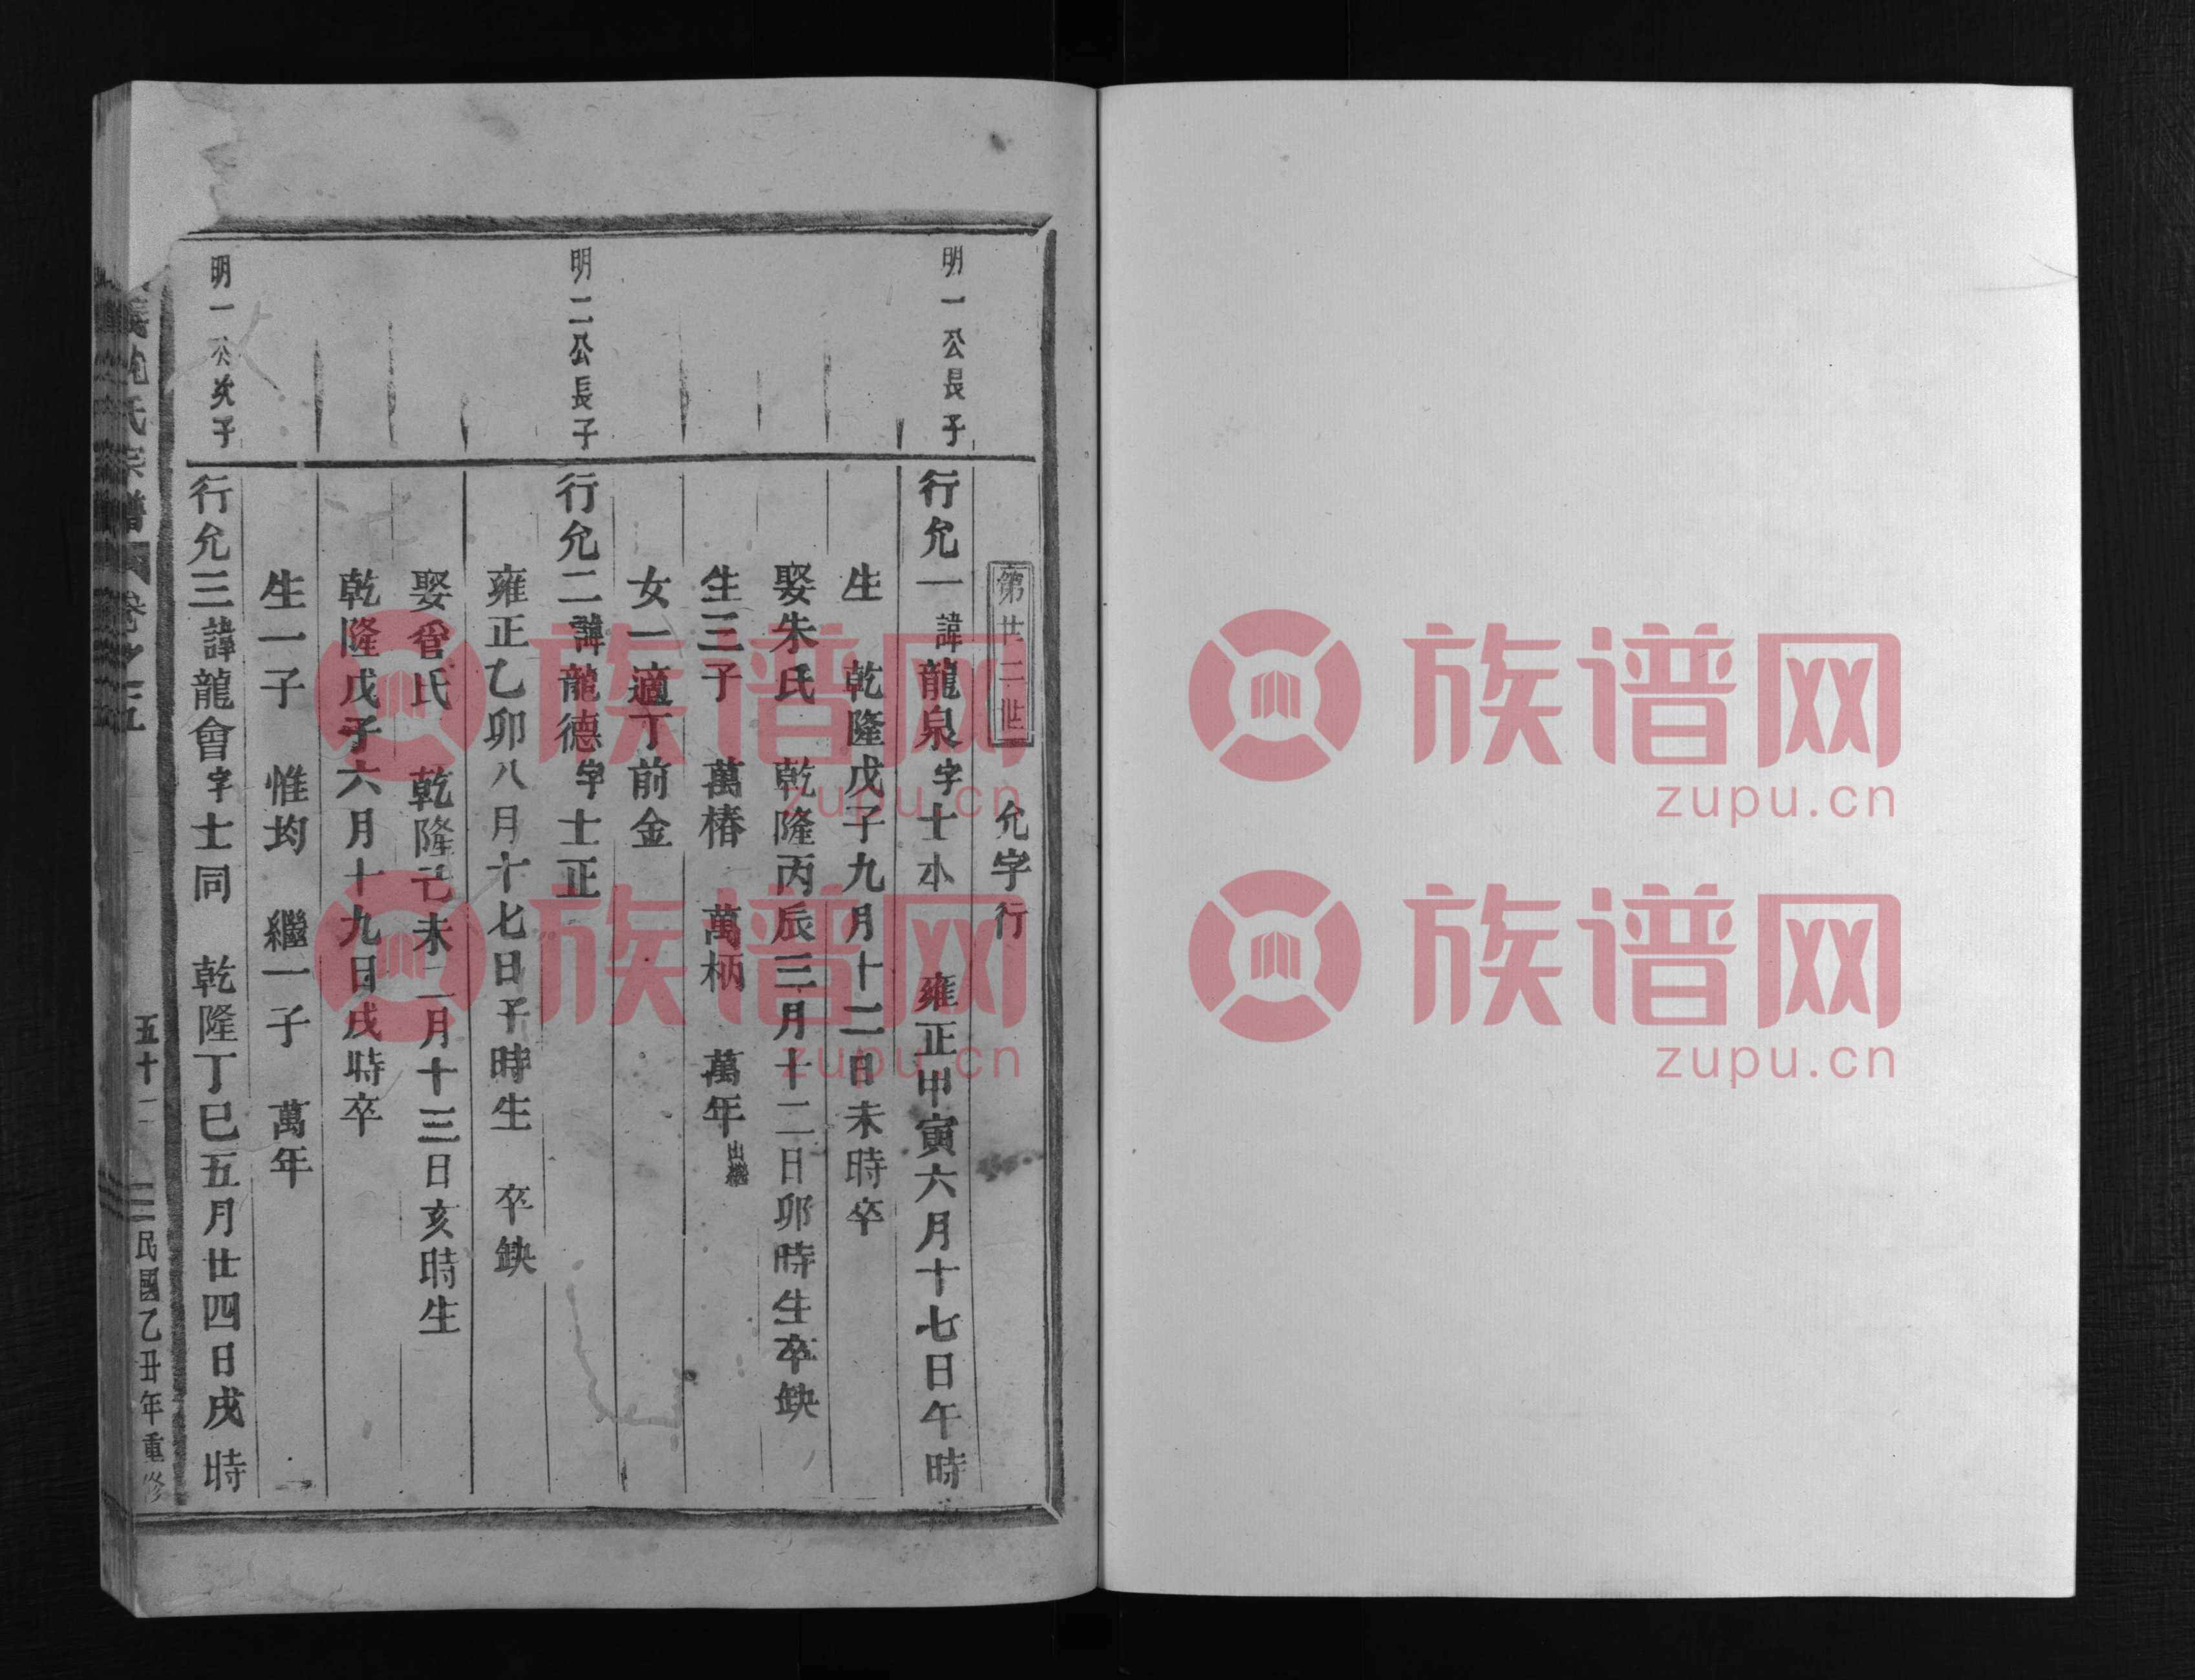 第廿二世 允字行
明一公長子
行允一諱龍泉字士本 雍正甲寅六月十七日午時
生 乾隆戊子九月十二日未時卒
娶朱氏 乾隆丙辰三月十二日卯時生卒缺
生三子 萬椿 萬柄 萬年出繼
女一適丁前金
明二公長子
行允二諱龍德字士正
雍正乙卯八月十七日子時生 卒缺
娶管氏 乾隆己未二月十三日亥時生
乾隆戊子六月十九日戌時卒
生一子 惟均 繼一子 萬年
明一公次子
行允三諱龍會字士同 乾隆丁巳五月廿四日戌時
氏宗譜 卷之五
五十一
民國乙丑年重修
族谱网
zupu.cn
族谱网
zupu.cn
族谱网
zupu.cn
族谱网
zupu.cn